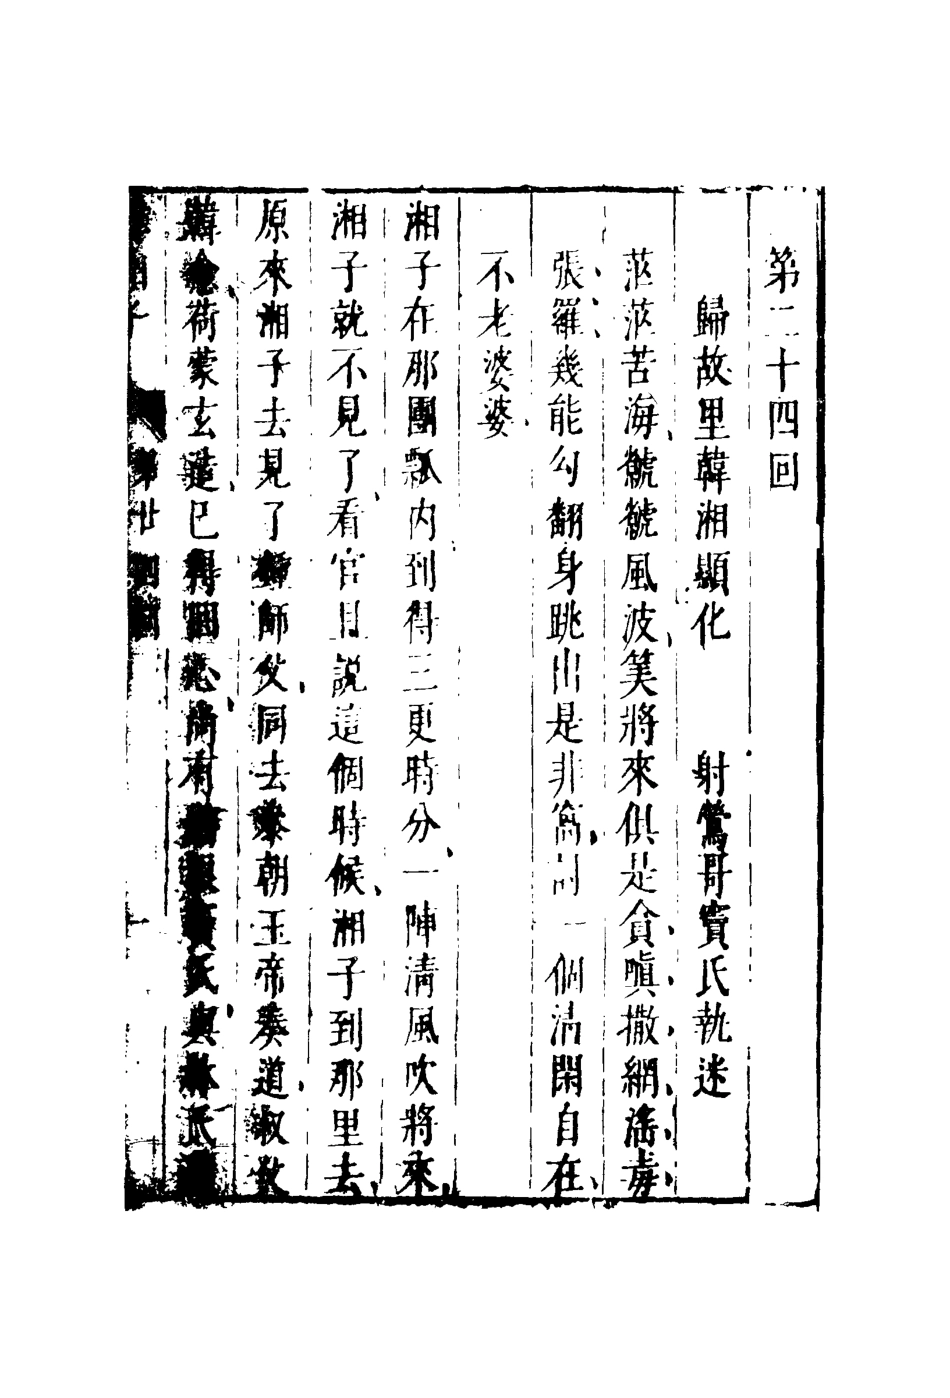 第二十四回
歸故里韓湘顯化　射鶯哥竇氏執迷
茫茫苦海、虩虩風波、算將來俱是貪嗔撒網、滛毒
張羅、幾能勾翻身跳出是非窩、討一個清閑自在、
不老婆婆、
湘子在那團瓢内到得三更時分、一陣清風吹將來、
湘子就不見了、看官且説這個時候、湘子到那里去、
原來湘子去見了師父、同去朝玉帝奏道、叔父
韓愈、荷蒙玄造、已得回心、尚有竇氏與林氏
第廿四回